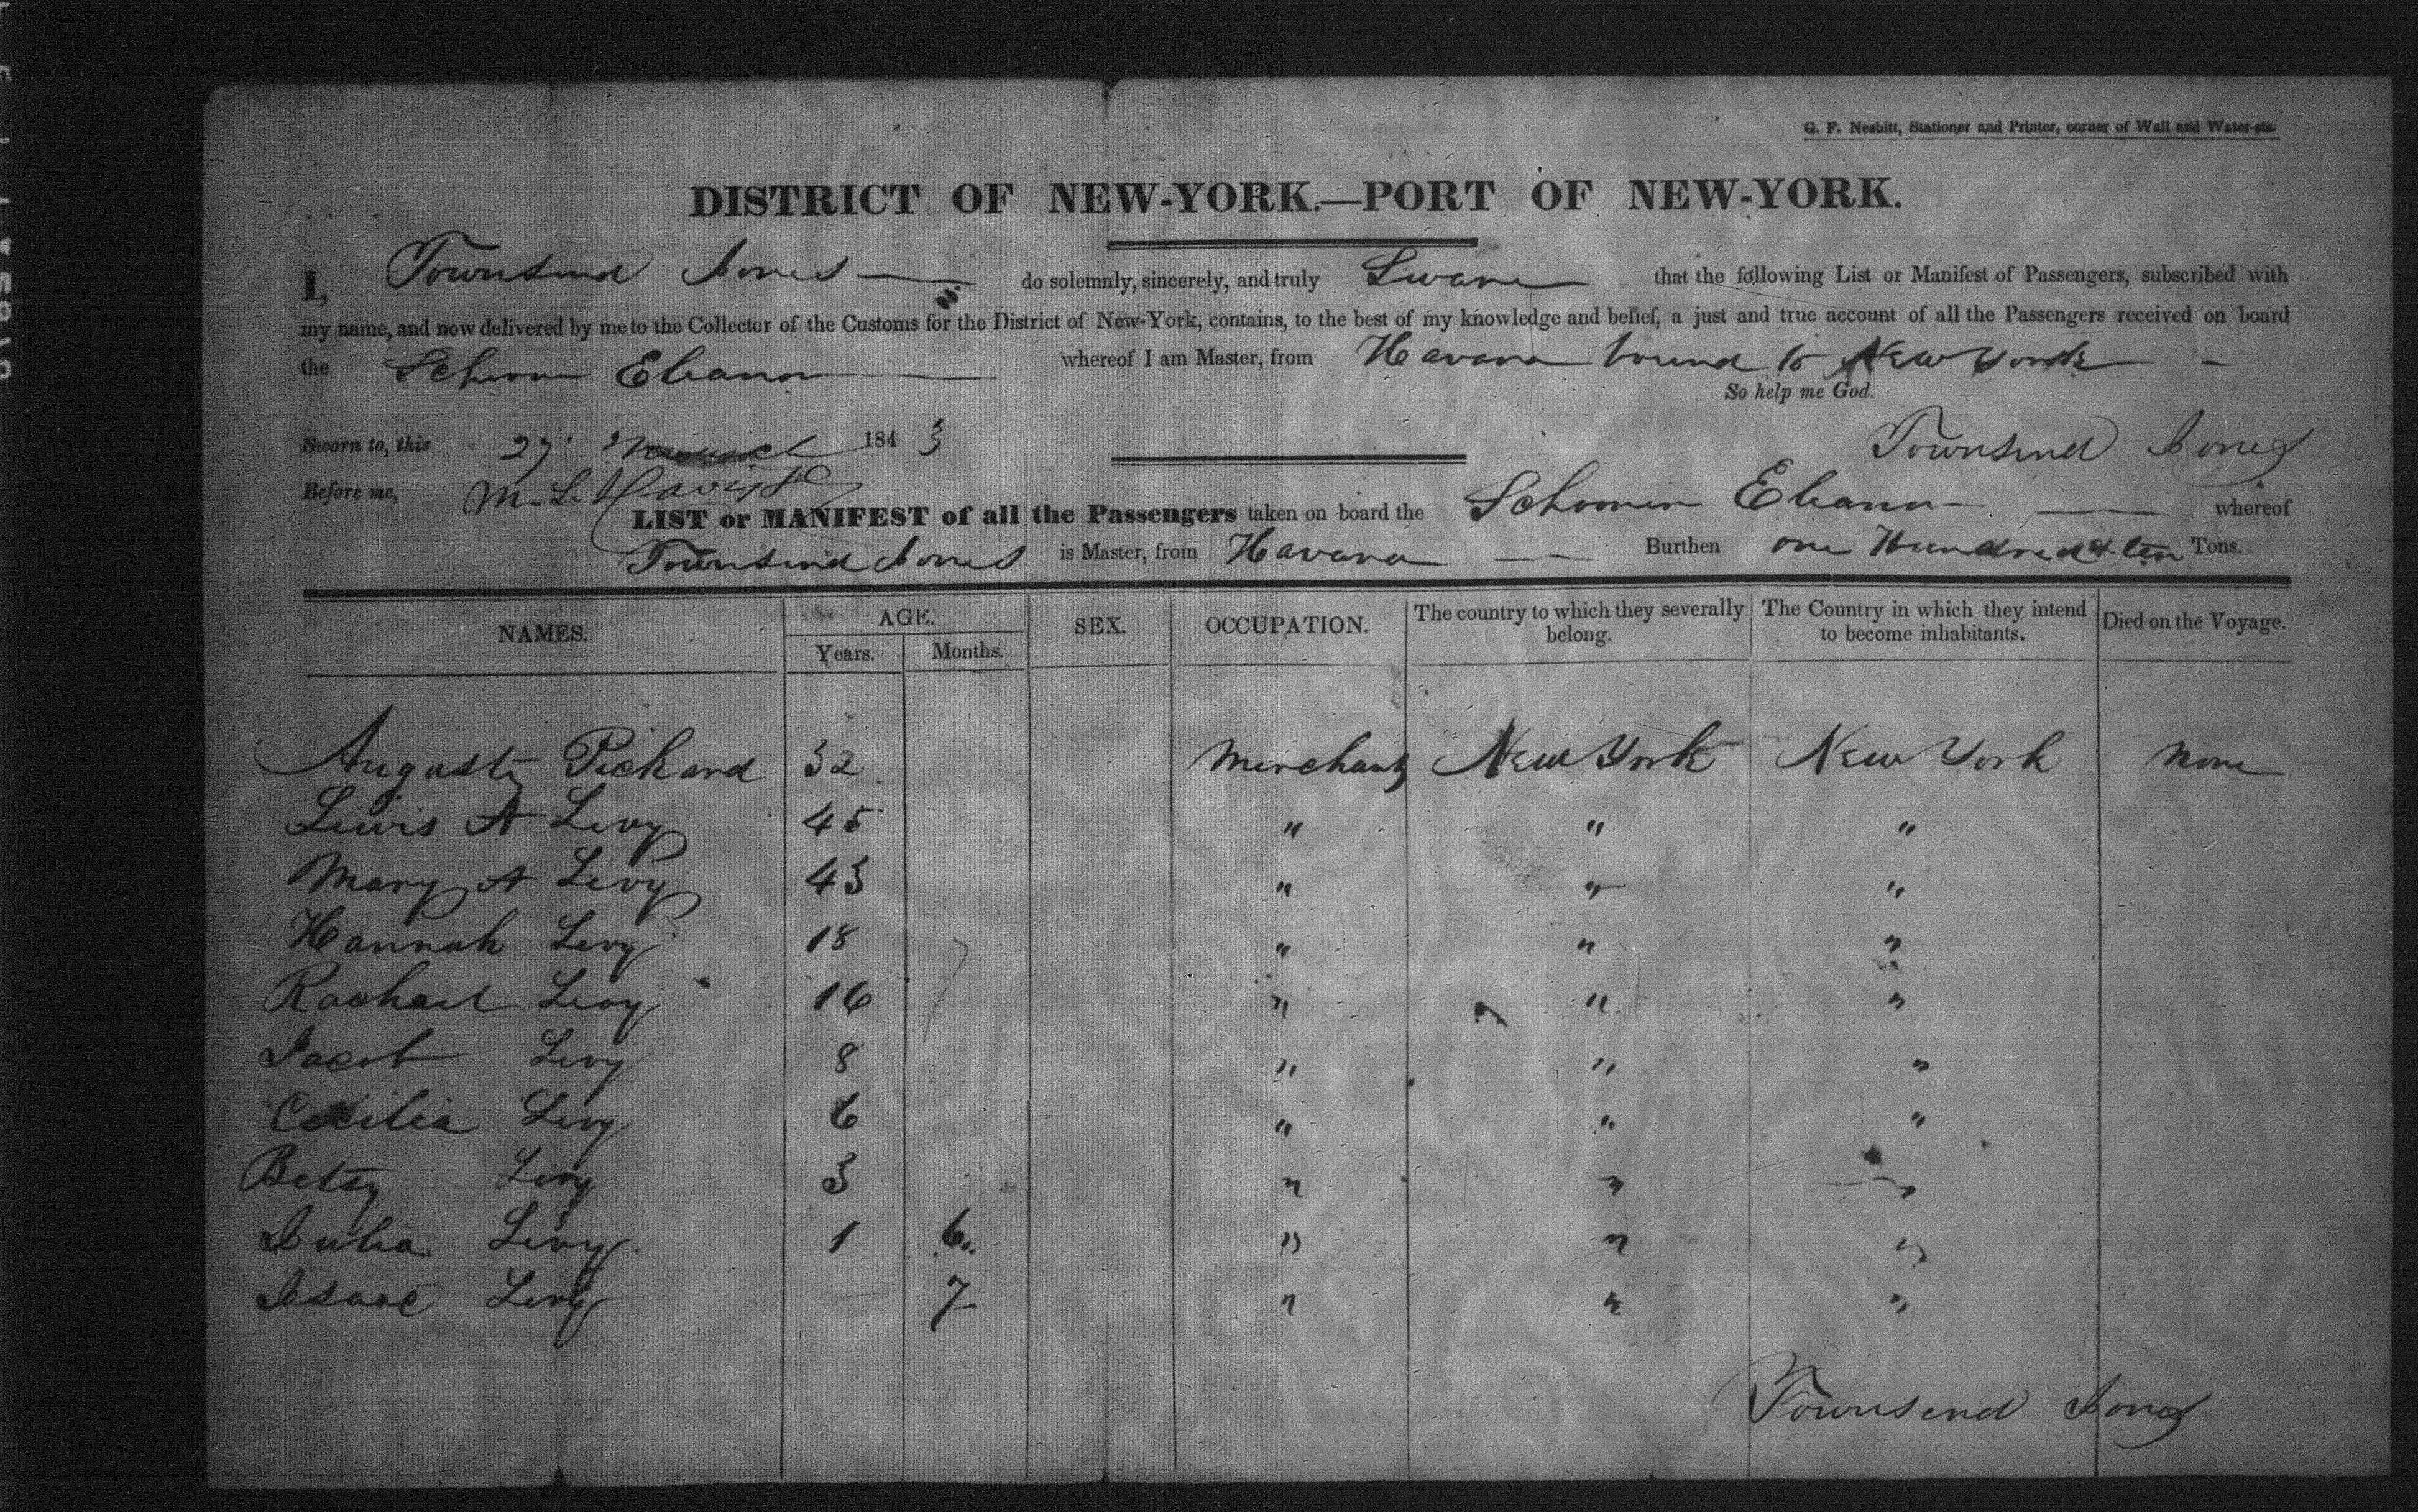 G. F. Nesbitt, Stationer and Printer, corner of Wall and Water-sts.
DISTRICT OF NEW-YORK.—PORT OF NEW-YORK.
I, Townsend Jones do solemnly, sincerely, and truly Swear that the following List or Manifest of Passengers, subscribed with
my name, and now delivered by me to the Collector of the Customs for the District of New-York, contains, to the best of my knowledge and belief, a just and true account of all the Passengers received on board
the Eleanor whereof I am Master, from Havana bound to New York
So help me God.
Sworn to, this 27 March 1843
Townsend Jones
Before me, M. L.
LIST or MANIFEST of all the Passengers taken on board the Schooner Eleanor whereof
Townsend Jones is Master, from Havana Burthen one Hundred & ten Tons.
NAMES. AGE. SEX. OCCUPATION. The country to which they severally belong. The Country in which they intend to become inhabitants. Died on the Voyage.
Years. Months.
Auguste Pickard 32 Merchant New York New York None
Lewis A Levy 45 " " "
Mary A Levy 43 " " "
Hannah Levy 18 " " "
Rachael Levy 16 " " "
Jacob Levy 8 " " "
Cecilia Levy 6 " " "
Betsy Levy 3 " " "
Julia Levy 1 6 " " "
Isaac Levy — 7 " " "
Townsend Jones